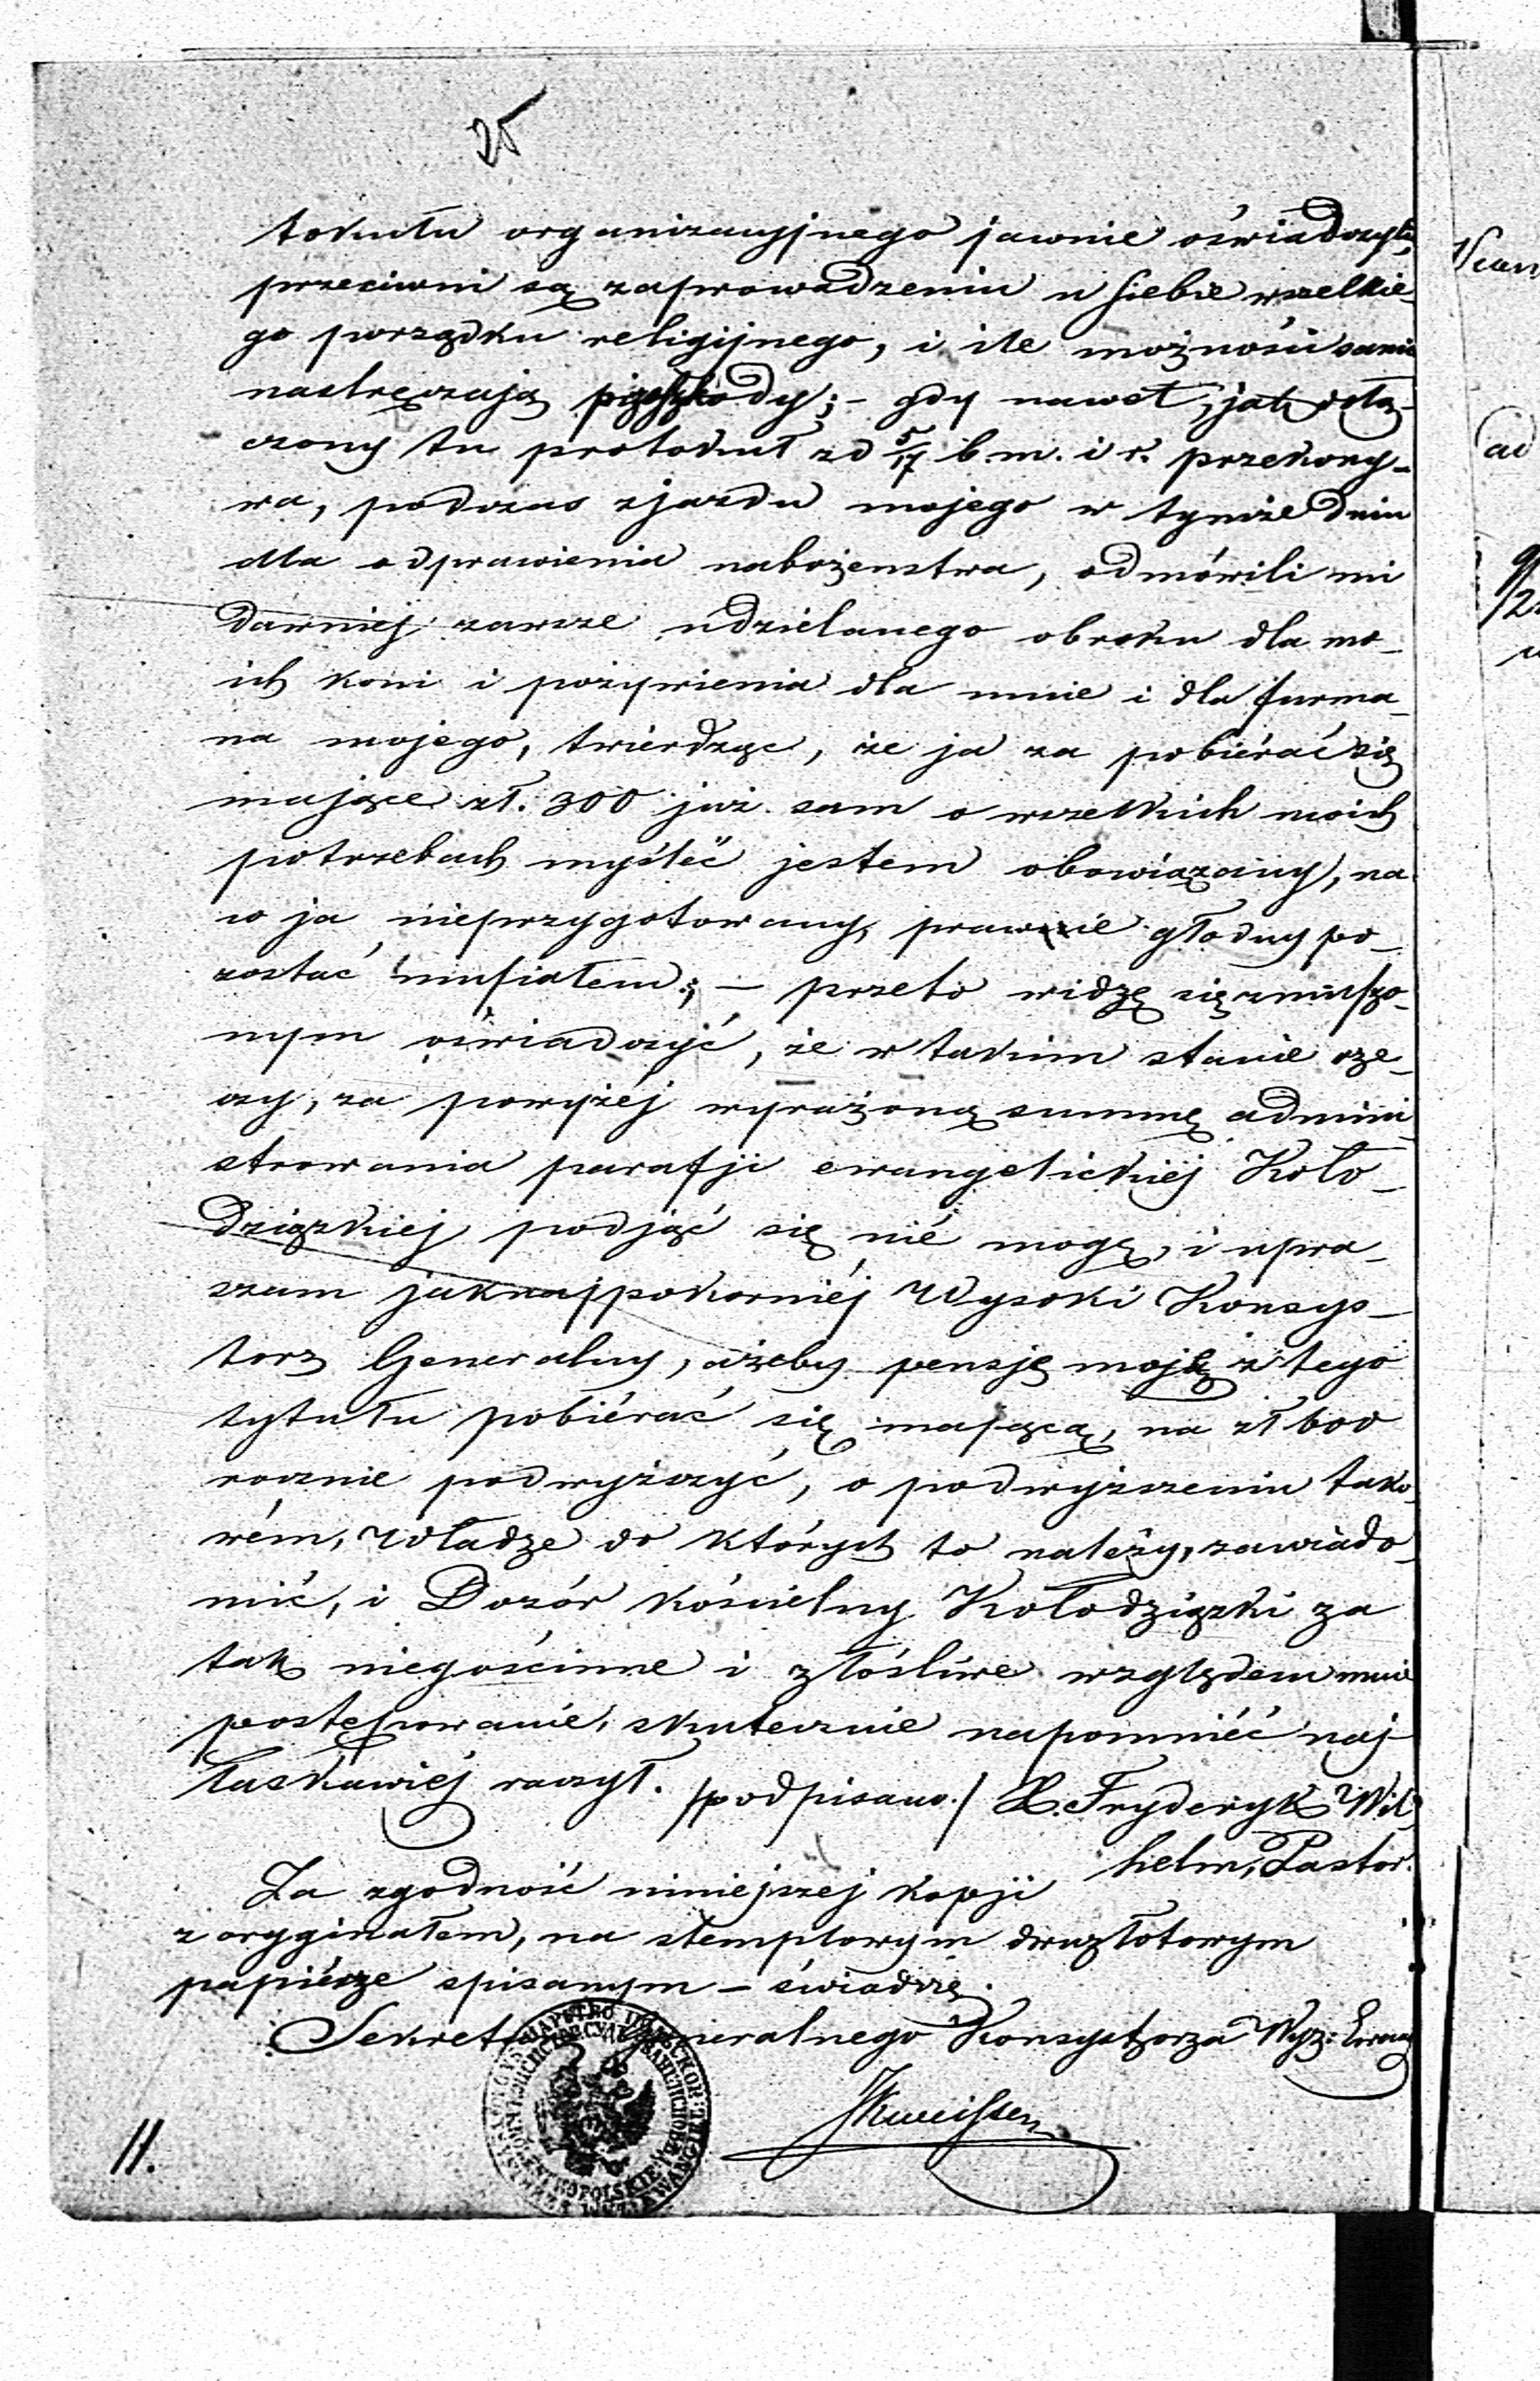 25
tokułu organizacyjnego jawnie oświadczyli,
przeciwni są zaprowadzeniu u siebie wszelkie-
go porządku religijnego, i ile możności sami
nastręczają przeszkody; – gdy nawet, jak dołą-
czony tu protokuł zd 5/17 b.m. i r. przekony-
wa, podczas zjazdu mojego w tymże dniu
dla odprawienia nabożenstwa, odmówili mi
dawniej zawsze udzielanego obroku dla mo-
ich koni i pożywienia dla mnie i dla furma-
na mojego, twierdząc, że ja za pobiérać się
mające zł. 300 już sam o wszelkich moich
potrzebach myśleć jestem obowiązany, na
co ja nieprzygotowany, prawnie głodny po-
zostać musiałem; – przeto widzę się zmuszo-
nym oświadczyć, że w takim stanie rze-
czy, za powyżéj wyrażoną summę admini
strowania parafji ewangelickiéj Koło-
dziązkiej podjąć się nié mogę, i upra-
szam jaknajpokorniéj Wysoki Konsys-
torz Generalny, ażeby pensję moję z tego
tytułu pobiérać się mającą, na zł 600
rocznie podwyższyć, o podwyższeniu tako-
wém, Władze do których to należy, zawiado-
mić, i Dozór kościelny Kołodziązki za
tak niegościnne i złośliwe względem mnie
postępowanie, skutecznie napomniéć naj-
łaskawiéj raczył. /podpisano./ X. Fryderyk Wil
helm, Pastor.
Za zgodność niniejszej kopji
z oryginałem, na stemplowym dwuzłotowym
papiérze spisanym – świadczę.
Sekretarz Generalnego Konsystorza Wyz: Ewang
11.